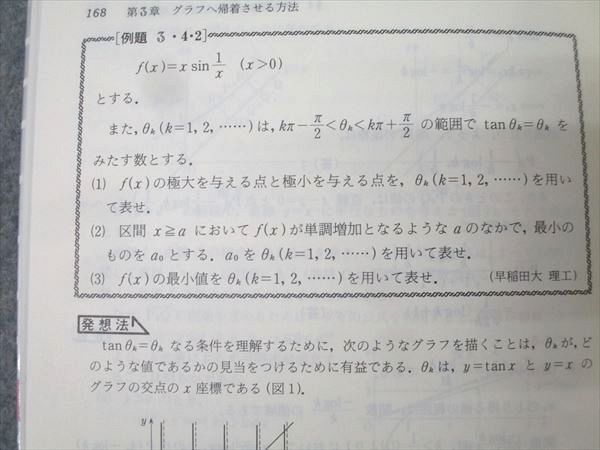 168 第3章 グラフへ帰着させる方法
[例題 3・4・2]
f(x)=x sin 1/x (x>0)
とする.
また, θk(k=1, 2, ……)は, kπ−π/2<θk<kπ+π/2 の範囲で tanθk=θk を
みたす数とする.
(1) f(x)の極大を与える点と極小を与える点を, θk(k=1, 2, ……)を用い
て表せ.
(2) 区間 x≧a において f(x)が単調増加となるような a のなかで, 最小の
ものを a0 とする. a0 を θk(k=1, 2, ……)を用いて表せ.
(3) f(x)の最小値を θk(k=1, 2, ……)を用いて表せ. (早稲田大 理工)
発想法
tanθk=θk なる条件を理解するために, 次のようなグラフを描くことは, θkが, ど
のような値であるかの見当をつけるために有益である. θkは, y=tanx と y=x の
グラフの交点の x 座標である(図1).
y